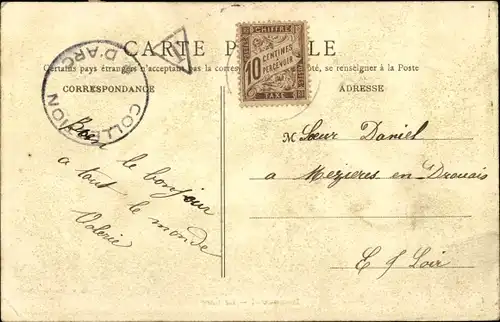 CARTE P LE
Certains pays étrangers n'acceptent pas la corres côté, se renseigner à la Poste
CORRESPONDANCE
ADRESSE
COLLECTION
D'ARC
T
CHIFFRE
10 CENTIMES
A PERCEVOIR
TAXE
Bien le bonjour
a tout le monde
Valerie
M Sœur Daniel
a Mezieres en Drouais
E & Loir